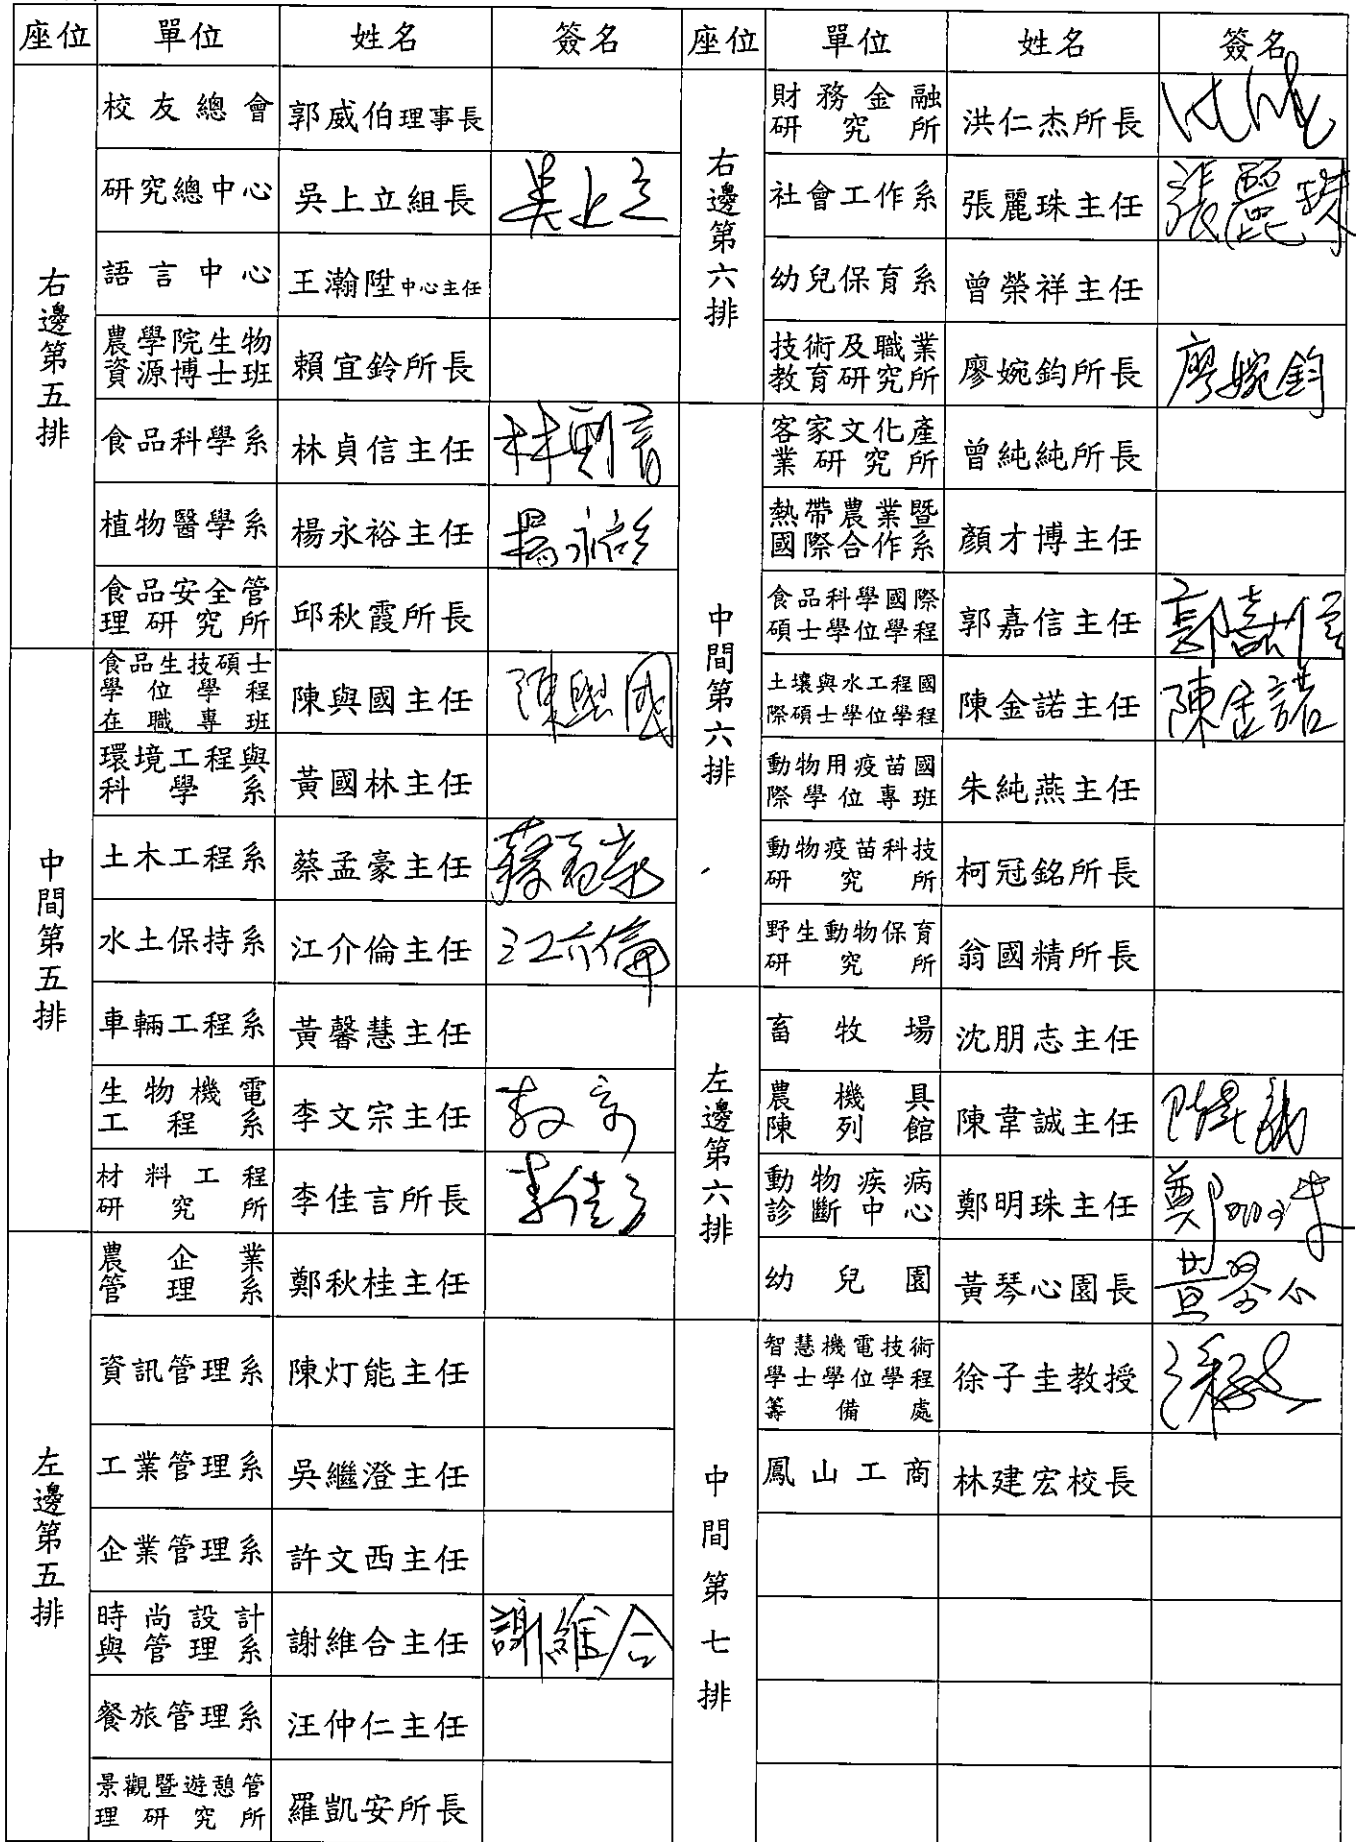 座位 單位 姓名 簽名
右邊第五排
校友總會 郭威伯理事長
研究總中心 吳上立組長 吳上立
語言中心 王瀚陞中心主任
農學院生物
資源博士班 賴宜鈴所長
食品科學系 林貞信主任 林貞信
植物醫學系 楊永裕主任 楊永裕
食品安全管
理研究所 邱秋霞所長
中間第五排
食品生技碩士
學位學程
在職專班 陳與國主任 陳與國
環境工程與
科學系 黃國林主任
土木工程系 蔡孟豪主任 蔡孟豪
水土保持系 江介倫主任 江介倫
車輛工程系 黃馨慧主任
生物機電
工程系 李文宗主任 李文宗
材料工程
研究所 李佳言所長 李佳言
左邊第五排
農企業
管理系 鄭秋桂主任
資訊管理系 陳灯能主任
工業管理系 吳繼澄主任
企業管理系 許文西主任
時尚設計
與管理系 謝維合主任 謝維合
餐旅管理系 汪仲仁主任
景觀暨遊憩管
理研究所 羅凱安所長
座位 單位 姓名 簽名
右邊第六排
財務金融
研究所 洪仁杰所長
社會工作系 張麗珠主任 張麗珠
幼兒保育系 曾榮祥主任
技術及職業
教育研究所 廖婉鈞所長 廖婉鈞
中間第六排
客家文化產
業研究所 曾純純所長
熱帶農業暨
國際合作系 顏才博主任
食品科學國際
碩士學位學程 郭嘉信主任 郭嘉信
土壤與水工程國
際碩士學位學程 陳金諾主任 陳金諾
動物用疫苗國
際學位專班 朱純燕主任
動物疫苗科技
研究所 柯冠銘所長
野生動物保育
研究所 翁國精所長
左邊第六排
畜牧場 沈朋志主任
農機具
陳列館 陳韋誠主任 陳韋誠
動物疾病
診斷中心 鄭明珠主任 鄭明珠
幼兒園 黃琴心園長 黃琴心
中間第七排
智慧機電技術
學士學位學程
籌備處 徐子圭教授
鳳山工商 林建宏校長